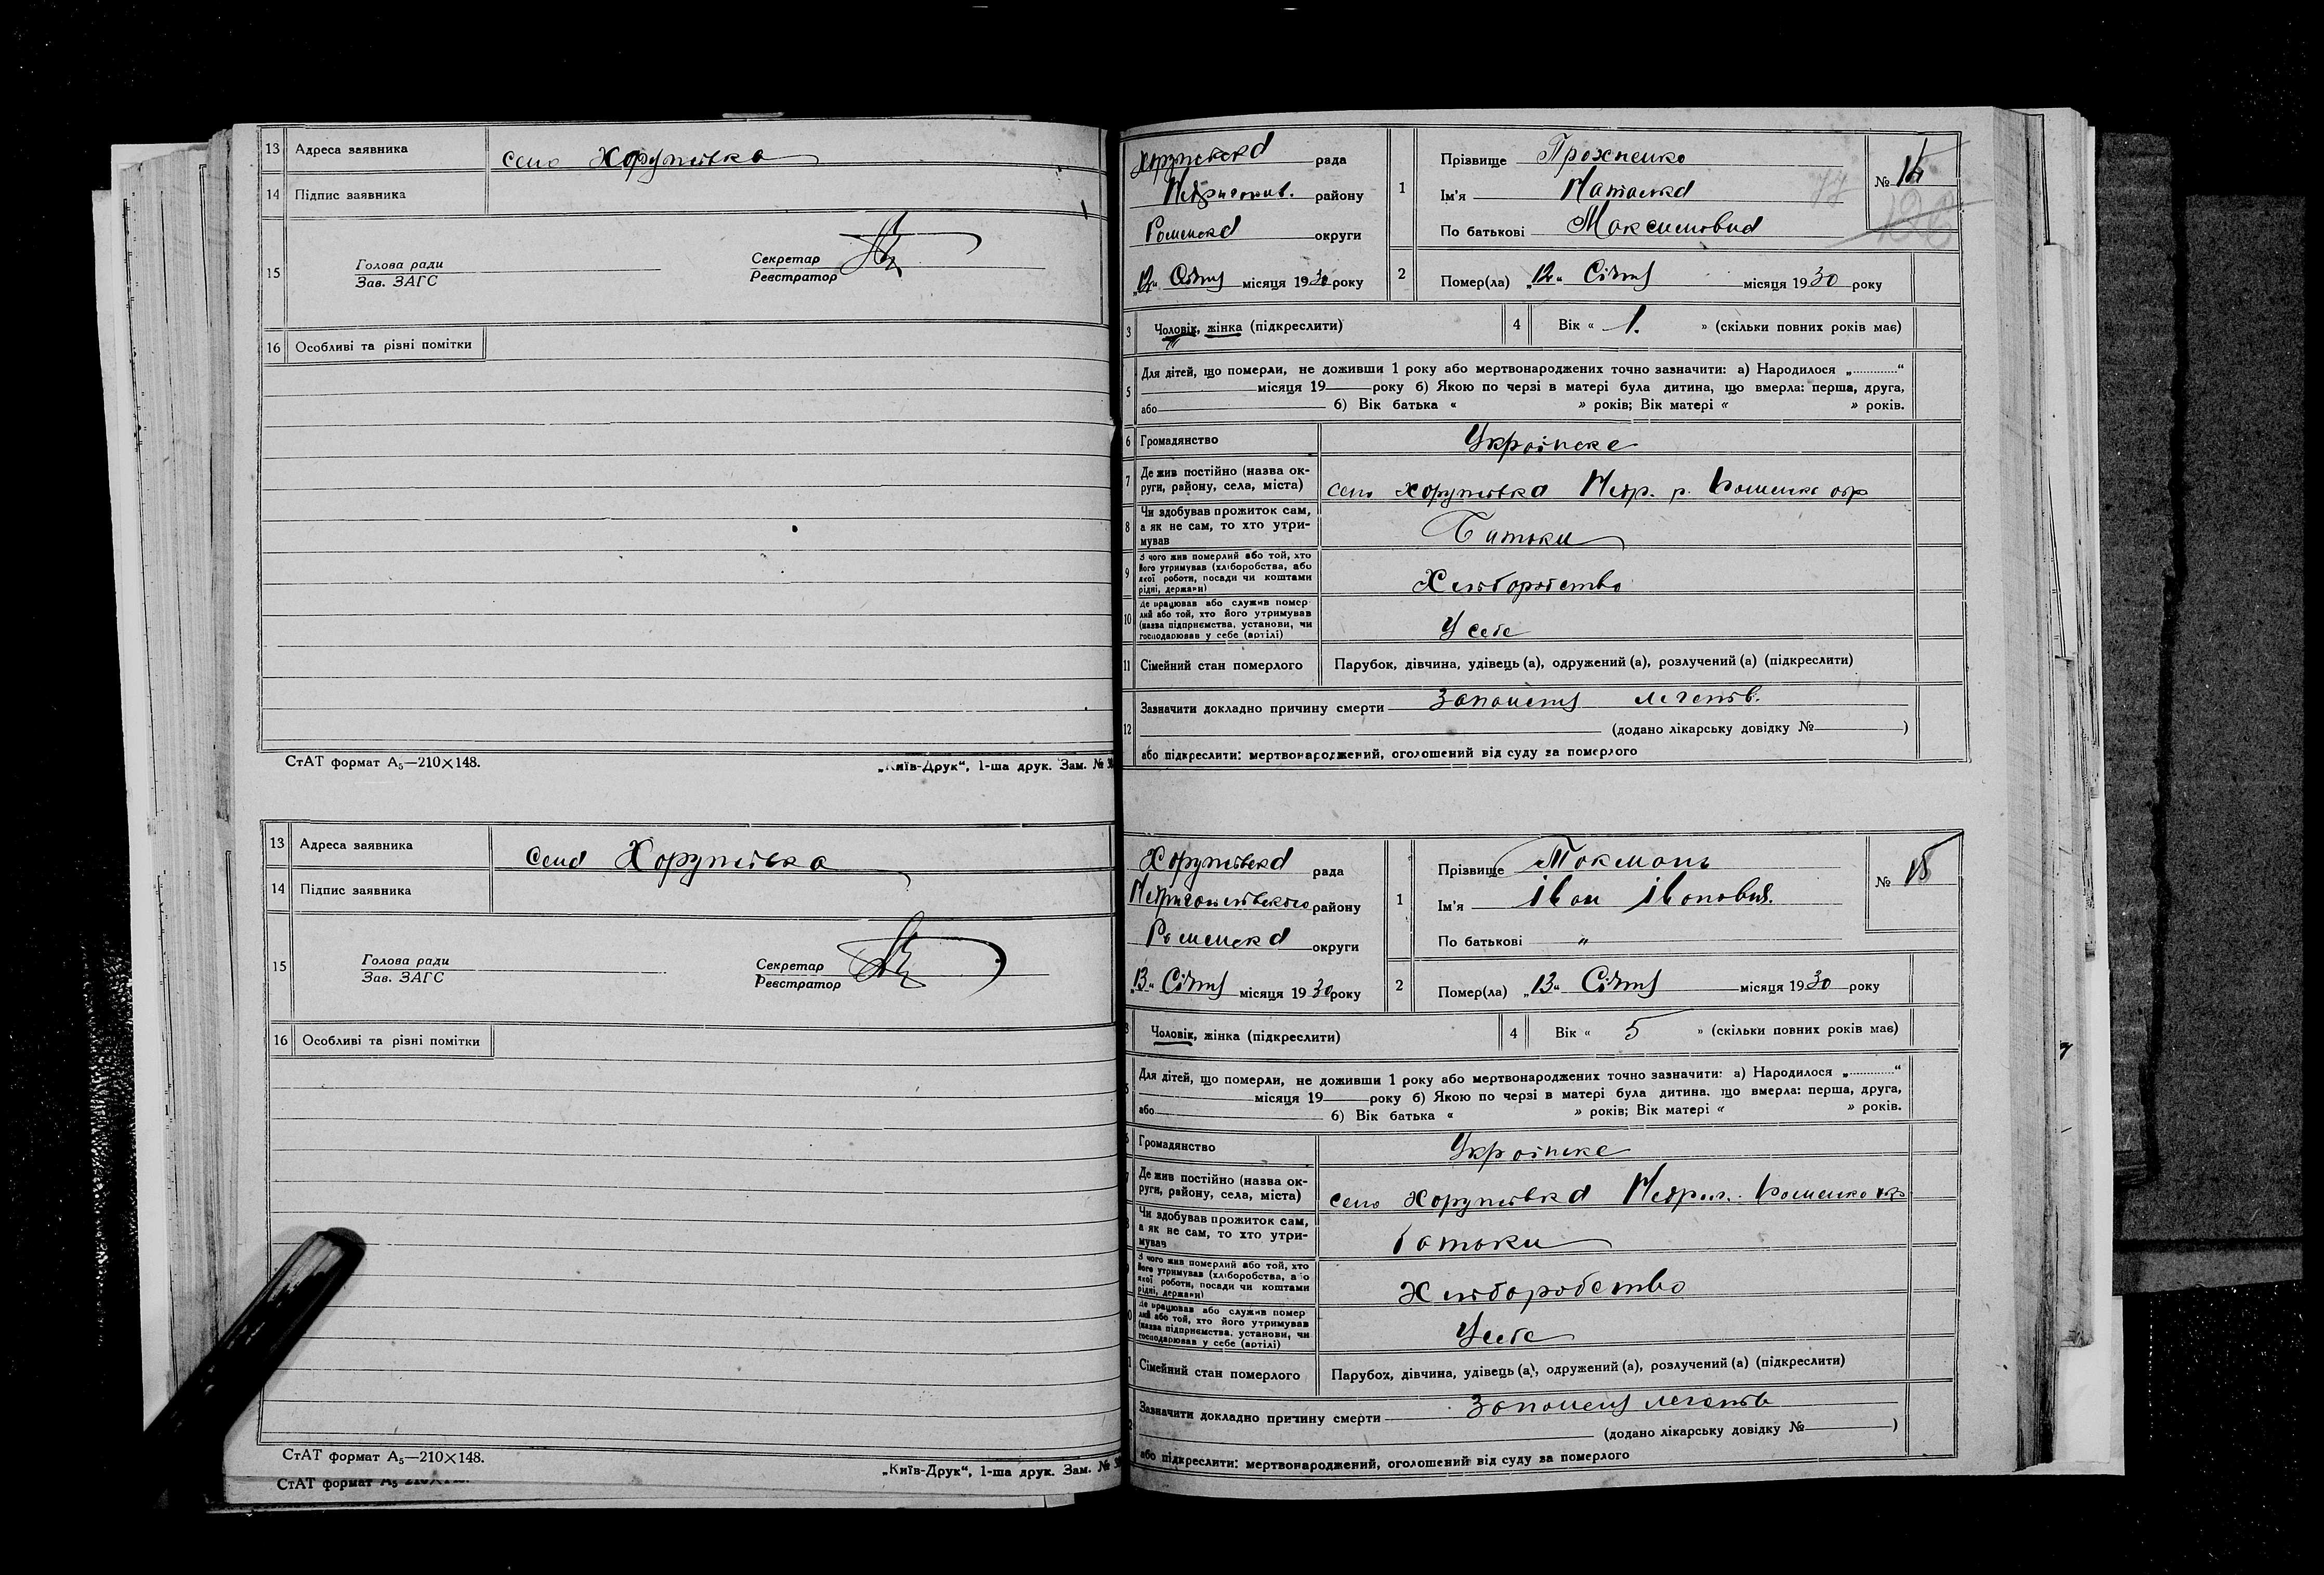 13 Адреса заявника село Хоружівка
14 Підпис заявника
15 Голова ради
Зав. ЗАГС
Секретар
Реєстратор
16 Особливі та різні помітки
СтАТ формат А₅—210×148.
„Київ-Друк“, 1-ша друк. Зам. №
13 Адреса заявника село Хоружівка
14 Підпис заявника
15 Голова ради
Зав. ЗАГС
Секретар
Реєстратор
16 Особливі та різні помітки
СтАТ формат А₅—210×148.
„Київ-Друк“, 1-ша друк. Зам. №
СтАТ формат
Хоружівска рада
Недригайлів. району
Роменска округи
„12“ Січня місяця 1930 року
1 Прізвище
Ім'я Наталка
По батькові Максимовна
№ 14
2 Помер(ла) „12“ Січня місяця 1930 року
3 Чоловік, жінка (підкреслити)
4 Вік « 1. » (скільки повних років має)
5 Для дітей, що померли, не доживши 1 року або мертвонароджених точно зазначити: а) Народилося „............“
місяця 19 року б) Якою по черзі в матері була дитина, що вмерла: перша, друга,
або б) Вік батька « » років; Вік матері « » років.
6 Громадянство Українске
7 Де жив постійно (назва округи, району, села, міста) село Хоружівка Недр. р. Роменско окр
8 Чи здобував прожиток сам, а як не сам, то хто утримував Батьки
9 З чого жив померлий або той, хто його утримував (хліборобства, або якої роботи, посади чи коштами рідні, держави) Хліборобство
10 Де працював або служив померлий або той, хто його утримував (назва підприємства, установи, чи господарював у себе (артілі) У себе
11 Сімейний стан померлого Парубок, дівчина, удівець (а), одружений (а), розлучений (а) (підкреслити)
12 Зазначити докладно причину смерти Запаленя легенів.
(додано лікарську довідку № )
або підкреслити: мертвонароджений, оголошений від суду за померлого
Хоружівска рада
Недригайлівского району
Роменска округи
„13“ Січня місяця 1930 року
1 Прізвище Токмань
Ім'я Іван Іванович.
По батькові "
№ 15
2 Помер(ла) „13“ Січня місяця 1930 року
Чоловік, жінка (підкреслити)
4 Вік « 5 » (скільки повних років має)
Для дітей, що померли, не доживши 1 року або мертвонароджених точно зазначити: а) Народилося „............“
місяця 19 року б) Якою по черзі в матері була дитина, що вмерла: перша, друга,
або б) Вік батька « » років; Вік матері « » років.
Громадянство Українске
Де жив постійно (назва округи, району, села, міста) село Хоружівка Недриг. Роменско окр
Чи здобував прожиток сам, а як не сам, то хто утримував батьки
З чого жив померлий або той, хто його утримував (хліборобства, або якої роботи, посади чи коштами рідні, держави) Хліборобство
Де працював або служив померлий або той, хто його утримував (назва підприємства, установи, чи господарював у себе (артілі) У себе
Сімейний стан померлого Парубок, дівчина, удівець (а), одружений (а), розлучений (а) (підкреслити)
Зазначити докладно причину смерти Запаленя легенів
(додано лікарську довідку № )
або підкреслити: мертвонароджений, оголошений від суду за померлого